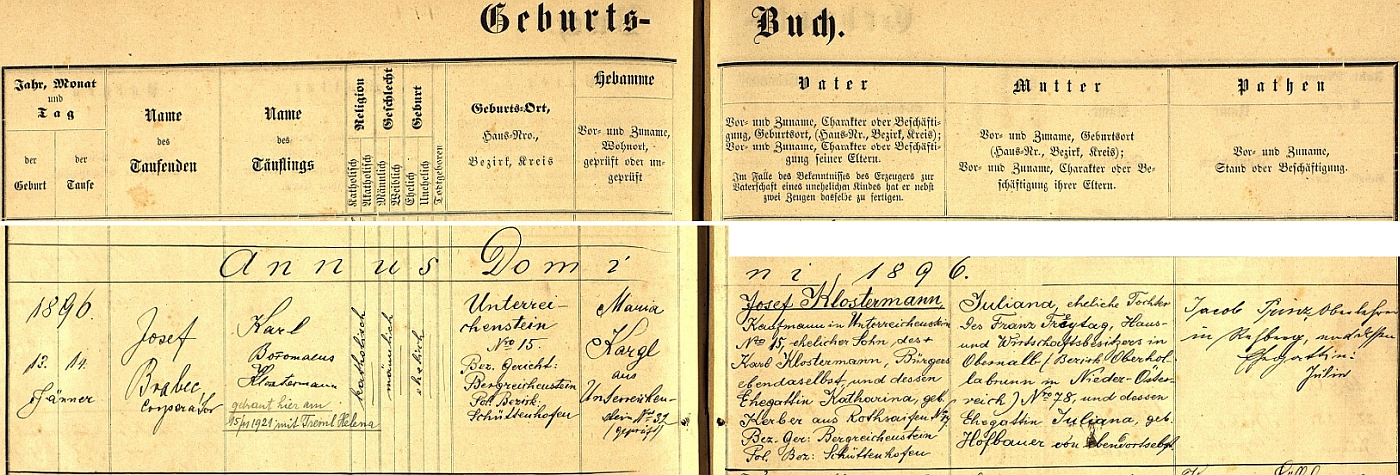 Geburts-
Buch.
Jahr, Monat
und
Tag
der
Geburt
der
Taufe
Name
des
Taufenden
Name
des
Täuflings
Religion
Katholisch
Akatholisch
Geschlecht
Männlich
Weiblich
Geburt
Ehelich
Unehelich
Todtgeboren
Geburts-Ort,
Haus-Nro.,
Bezirk, Kreis
Hebamme
Vor- und Zuname,
Wohnort,
geprüft oder un-
geprüft
Vater
Vor- und Zuname, Charakter oder Beschäfti-
gung, Geburtsort, (Haus-Nr., Bezirk, Kreis);
Vor- und Zuname, Charakter oder Beschäfti-
gung seiner Eltern.
Im Falle des Bekenntnisses des Erzeugers zur
Vaterschaft eines unehelichen Kindes hat er nebst
zwei Zeugen dasselbe zu fertigen.
Mutter
Vor- und Zuname, Geburtsort
(Haus-Nr., Bezirk, Kreis);
Vor- und Zuname, Charakter oder Be-
schäftigung ihrer Eltern.
Pathen
Vor- und Zuname,
Stand oder Beschäftigung.
Annus Domi
ni 1896.
1896.
13. 14.
Jänner
Josef
Brabec
Corporator
Karl
Boromaeus
Klostermann
getraut hier am
1921 mit Treml Helena
katholisch
männlich
ehelich
Unterrei-
chenstein
Nro 15.
Bez. Gericht:
Bergreichenstein
Pol. Bezirk:
Schüttenhofen
Maria
Kargl
aus
Unterreichen-
stein No 32
(geprüft)
Josef Klostermann,
Kaufmann in Unterreichenstein
No 15, ehelicher Sohn, des +
Karl Klostermann, Bürgers
ebendaselbst, und dessen
Ehegattin Katharina, geb.
Kerber aus Rothsaifen
Bez. Ger: Bergreichenstein
Pol. Bez: Schüttenhofen
Juliana, eheliche Tochter
des Franz Freytag, Haus-
und Wirtschaftsbesitzers in
Obernalb (Bezirk Oberhol
labrunn in Nieder-Öster-
reich) No 78, und dessen
Ehegattin Juliana, geb.
Hofbauer von ebendortselbst.
Jacob Prinz, Oberlehrer
in Rehberg, und dessen
Ehegattin:
Julie